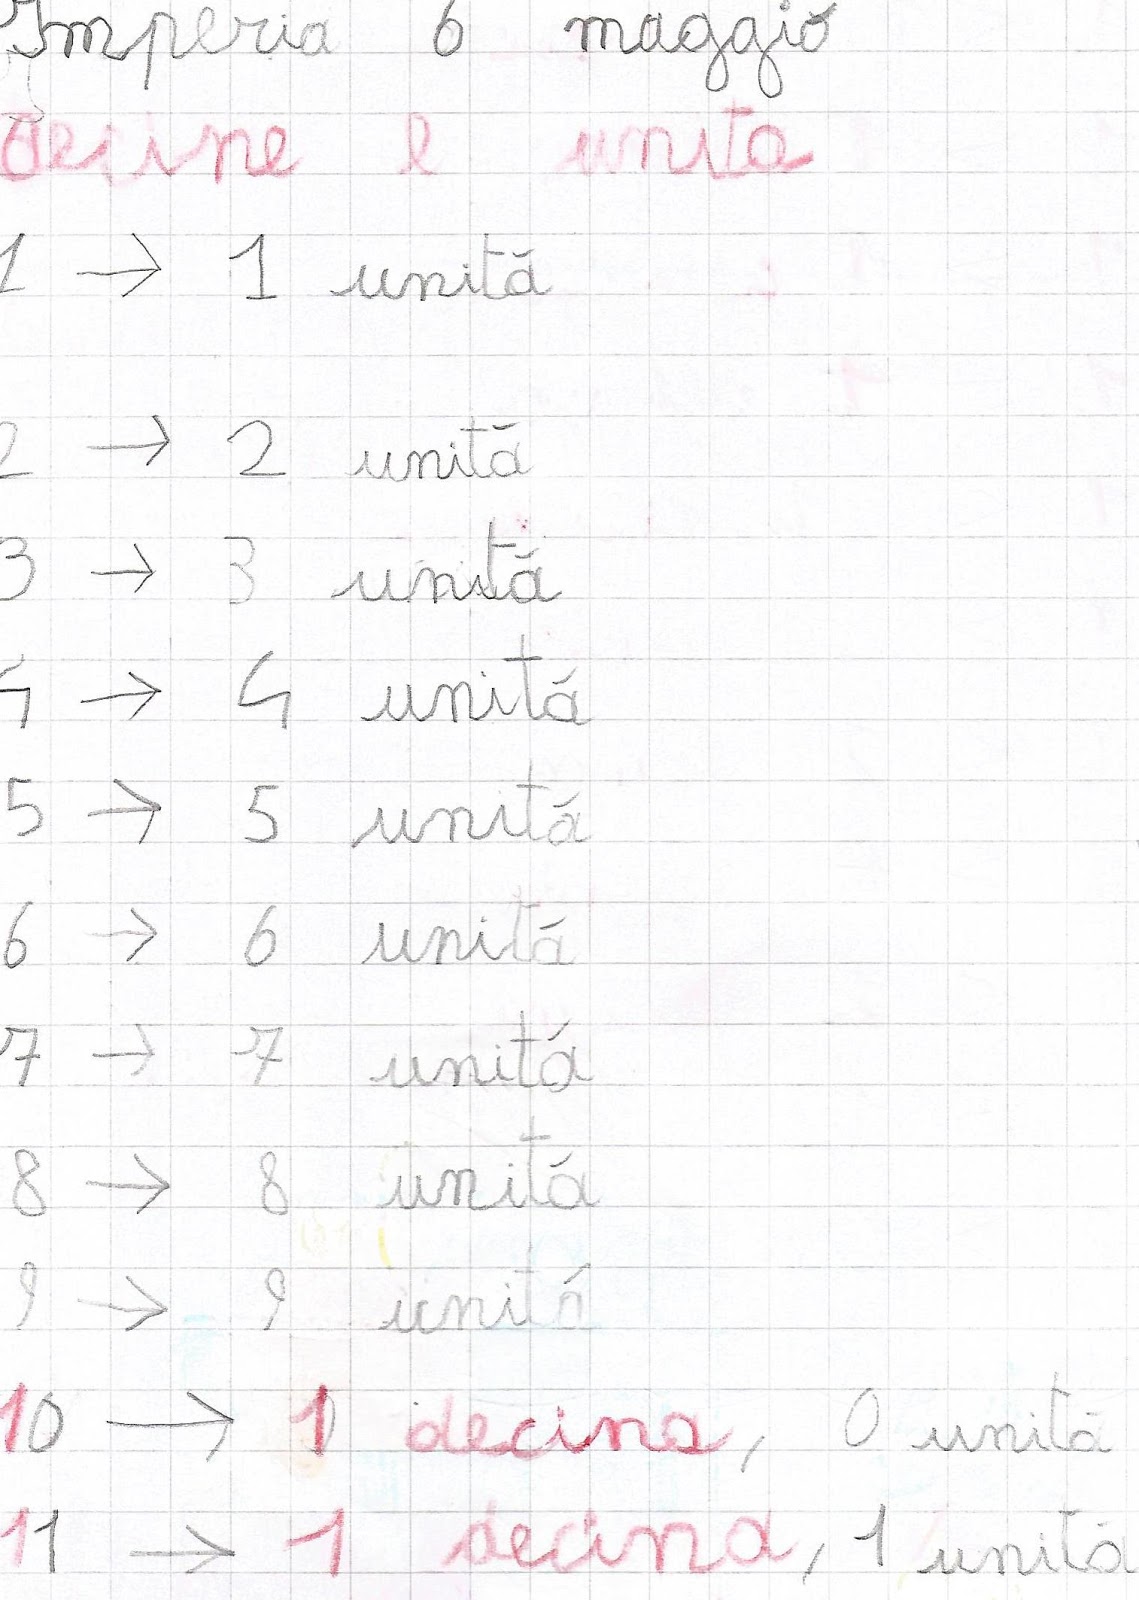 Imperia 6 maggio
decine e unita
1 → 1 unità
2 → 2 unità
3 → 3 unità
4 → 4 unità
5 → 5 unità
6 → 6 unità
7 → 7 unità
8 → 8 unità
9 → 9 unità
10 → 1 decina, 0 unità
11 → 1 decina, 1 unità